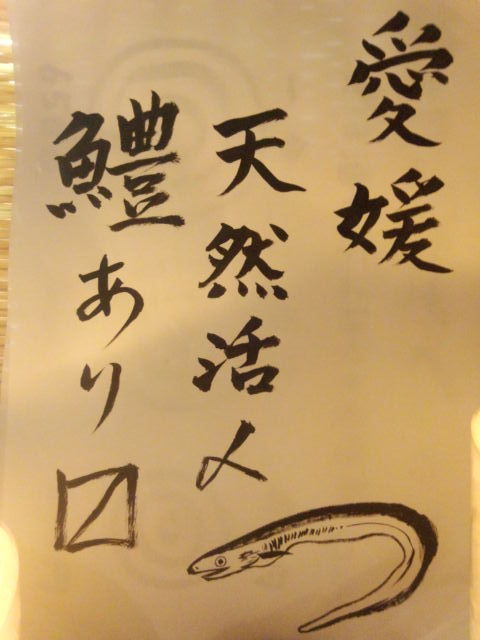 愛媛
天然活〆
鱧あり〼